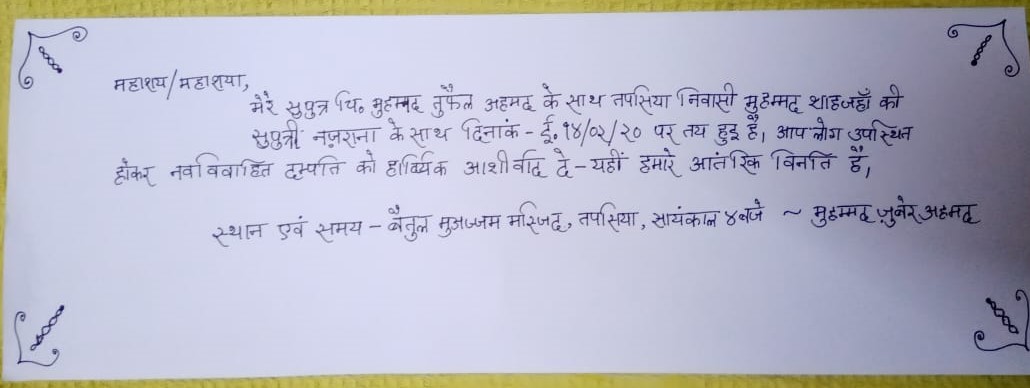 महाशय/महाशया,
मेरे सुपुत्र चि० मुहम्मद तुफैल अहमद के साथ तपसिया निवासी मुहम्मद शाहजहाँ की
सुपुत्री नज़राना के साथ दिनांक - ई. १४/०२/२० पर तय हुइ है, आप लोग उपस्थित
होकर नवविवाहित दम्पति को हार्ब्यिक आशीर्वाद दे - यहीं हमारे आंतरिक विनति है,
स्थान एवं समय - बैतुल मुअज्जम मस्जिद, तपसिया, सायंकाल ४ बजे ~ मुहम्मद जुबेर अहमद